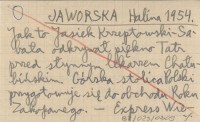 JAWORSKA Halina 1954.
Jak to Jasiek Krzeptowski-Sa-
bała odkrywał piękno Tatr
przed słynnym lekarzem Chału-
bińskim. Górska stolica Polski
przygotowuje się do obchodu Roku
Zakopanego. — Express Wie